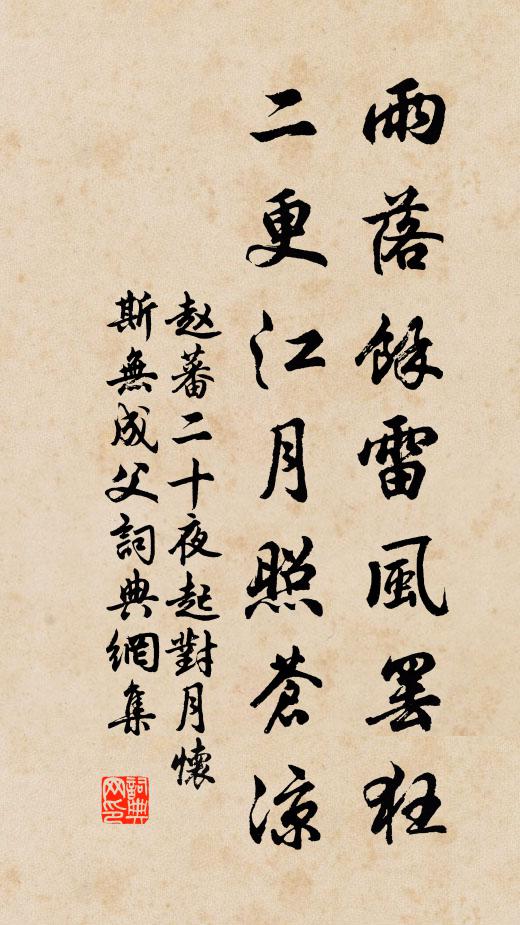 雨落餘雷風罢狂
二更江月照蒼涼
赵蕃二十夜起對月懷
斯無成父詞典網集
詞典网印